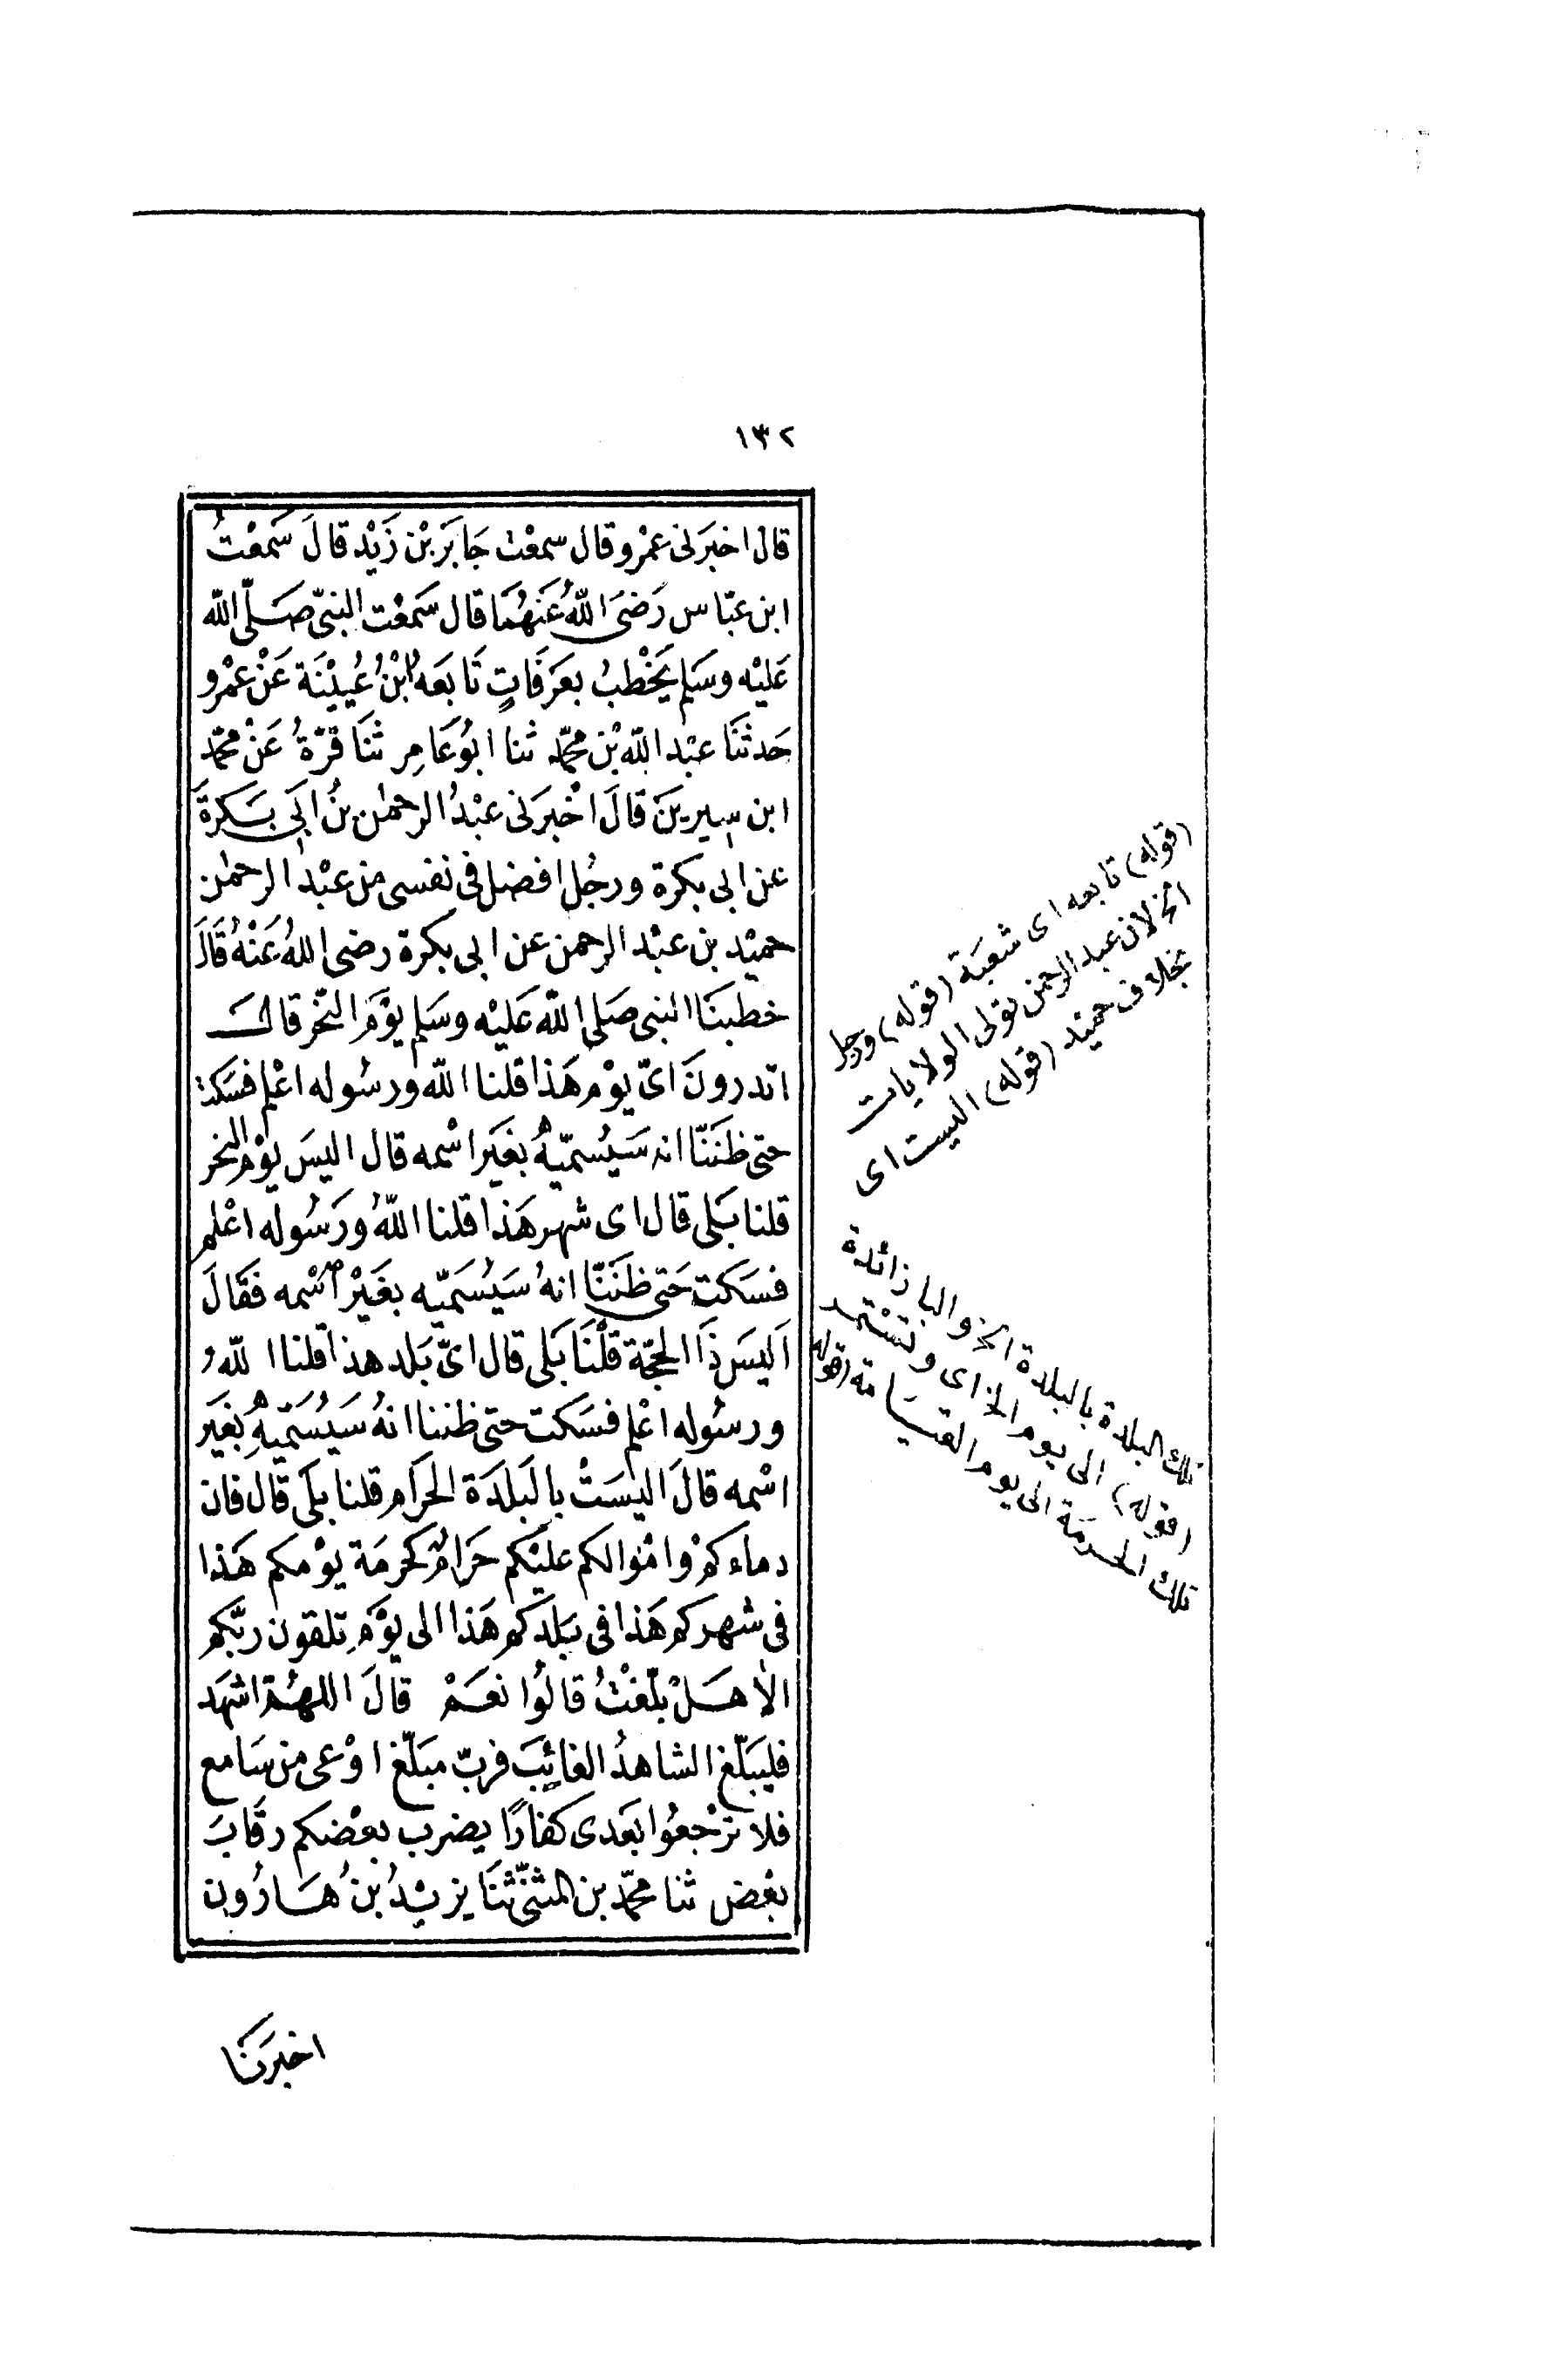 ١٣٢
قال اخبرنى عمْرو قال سمعْت جَابَر بْن زَيْد قالَ سَمعْتُ
ابن عبّاس رَضىَ اللّهُ عَنهُمَا قال سَمعْت النبىّ صَلّى الله
عَليْه وسَلم يَخْطبُ بعَرَفَاتٍ تَابعَهُ ابْنُ عُيَيْنَة عَنْ عمْرو
حَدثنَا عبْد اللّه بْن محمّد ثنا ابُو عَامِر ثنَا قرّةُ عَنْ محمّد
ابن سِيرينَ قالَ اخْبرَنى عبْدُ الرحمٰن بنُ ابَى بَكرةَ
عن ابى بكرة ورجُل افضل فى نفسى من عبْد الرحمٰن
حميْد بن عبْد الرحمن عن ابى بكرة رضى اللهُ عَنْهُ قَالَ
خطبنَا النبى صَلى اللّه عَليْه وسَلم يوْمَ النّحْر قالَ
اتدرونَ اىّ يوْم هَذا قلنا اللّه ورسُوله اعْلم فسَكت
حتى ظنَنّا انه سَيُسمّيْهُ بغَير اسْمه قال اليسَ يوْم النحر
قلنا بَلى قال اى شهر هَذا قلنا اللّهُ ورَسُوله اعْلم
فسَكت حَتى ظنَنّا انهُ سَيُسَمّيْه بغَيْر اسْمه فقَالَ
اَليسَ ذَا الحجّة قلْنَا بَلى قال اىّ بَلد هذا قلنا اللّهُ
ورسُوله اعْلم فسَكت حتى ظننا انهُ سَيُسَمّيْهِ بغَير
اسْمه قالَ اليسَتْ بالبَلدَة الحرَام قلنا بَلَى قال فان
دماءكمْ وامْوالكم عليْكم حَرامٌ كحرمَة يوْمكم هَذا
فى شهركم هَذا فى بَلدكم هَذا الى يوْمَ تلقون ربّكم
الا هَلْ بلّغْتُ قالُوا نعَمْ قالَ اللهُمّ اشهَد
فليبَلّغ الشاهدُ الغائِبَ فربّ مبَلّغ اوْعى من سَامع
فلا ترْجعُوا بعَدى كفارًا يضرب بعْضكم رقَابَ
بعْض ثنا محمّد بن المثنىّ ثنَا يزيْدُ بنُ هَارُون
اخبرَنَا
(قوله) تابعه اى شعبَة (قوله) ورجل
الخ لان عبد الرحمن تولى الولايات
بخلاف حميْد (قوله) اليست اى
تلك البلدة بالبلدة الخ والبا زائدة
(قوله) الى يوم الخ اى وتسْتمر
تلك الحرمَة الى يوم القيَامة (قوله